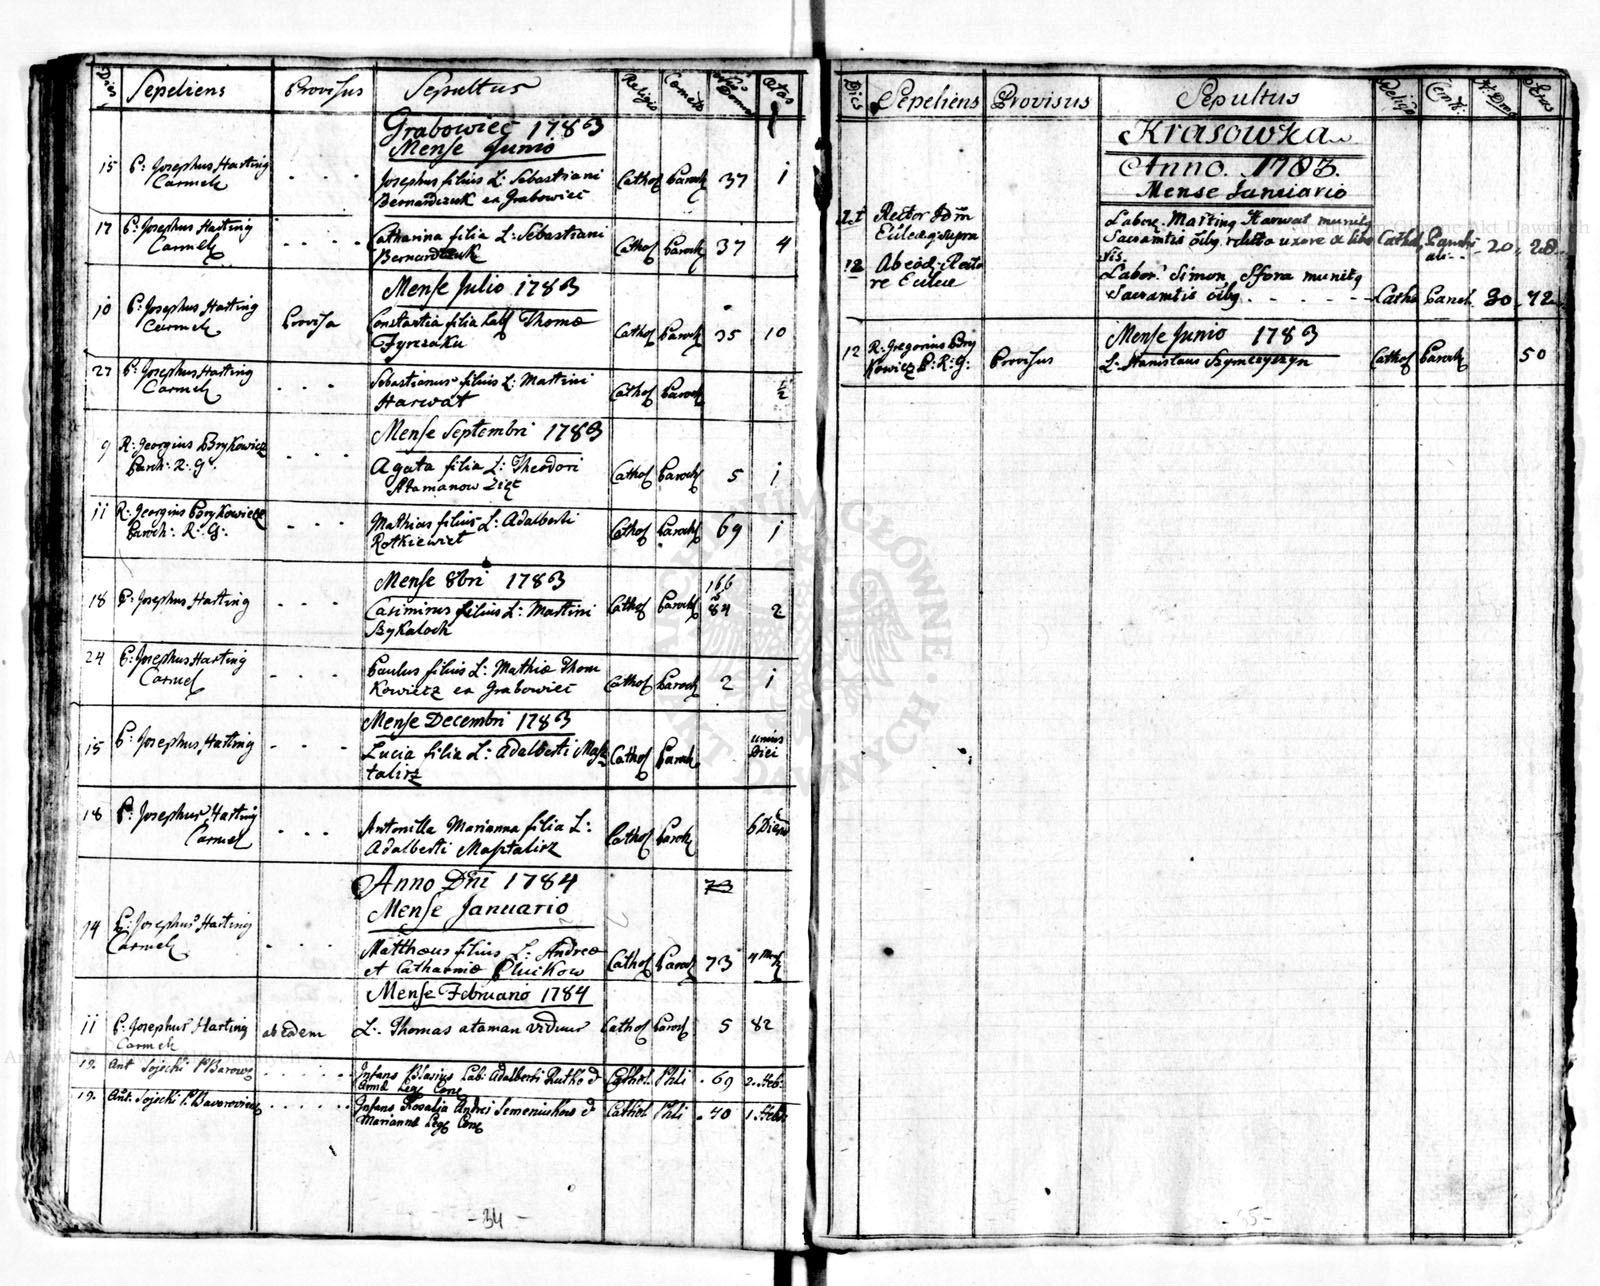 Dies Sepeliens Provisus Sepultus Religio Cemet: Nrus Domus Ætas
Grabowiec 1783
Mense Junio
15 P: Josephus Harting
Carmel
Josephus filius L: Sebastiani
Bernardczuk ex Grabowiec
Cathol Paroch 37 1
17 P: Josephus Harting
Carmel
Catharina filia L: Sebastiani
Bernardczuk
Cathol Paroch 37 4
Mense Julio 1783
10 P: Josephus Harting
Carmel
Provisa
Constantia filia Lab Thomæ
Cathol Paroch 35 10
27 P: Josephus Harting
Carmel
Sebastianus filius L: Martini
Harwat
Cathol Paroch ½
Mense Septembri 1783
9 R: Georgius Brykowicz
Paroch: R: G:
Agata filia L: Theodori
Atamanow
Cathol Paroch 5 1
11 R: Georgius Brykowicz
Paroch: R: G:
Mathias filius L: Adalberti
Rotkiewict
Cathol Paroch 69 1
Mense 8bri 1783
166
18 P: Josephus Harting
Casimirus filius L: Martini
Bykaloch
Cathol Paroch 84 2
24 P: Josephus Harting
Carmel
Paulus filius L: Mathiæ Thom
Kowietz ex Grabowiec
Cathol Paroch 2 1
Mense Decembri 1783
15 P: Josephus Harting
Lucia filia L: Adalberti Maſz
talirz
Cathol Paroch unius
Diei
18 P: Josephus Harting
Carmel
Antonilla Marianna filia L:
Adalberti Masztalirz
Cathol Paroch 6 Dier
Anno Dni 1784
73
Mense Januario
14 P: Josephus Harting
Carmel
Matthæus filius L: Andreæ
et Catharinæ
Cathol Paroch 73 4
Mense Februario 1784
11 P: Josephus Harting
Carmel
ab eadem
L: Thomas ataman viduus
Cathol Paroch 5 82
19. Ant Sojecki P Barow
Infans Blasius Lab: Adalberti Rutko &
Annæ Leg Con
Cathol Phli 69 2. Heb:
19. Ant: Sojecki P Baworowiec
Infans Rosalia Andrei Semeniuków &
Mariannæ Leg Con
Cathol Phli 40 1. Heb:
- 34 -
Dies Sepeliens Provisus Sepultus Religio Cemet: N: Dom Ætas
Krasowka
Anno. 1783.
Mense Januario
Rector Idm
Eclæ q supra
Labor. Marting Harwat munitg
Sacramtis oibg relicta uxore & libe
ris.
Cathol Parochi
ali 20 28
12 Ab eod: Recto
re Eclæ
Labor: Simon Sfora munitg
Sacramtis oibg
Catho Paroch 30 72
Mense Junio 1783
12 R: Gregorius Bry
Kowicz P: R: G:
Provisus
L: Stanislaus Szymczyszyn
Cathol Paroch 50
- 35 -
ARCHIWUM GŁÓWNE AKT DAWNYCH